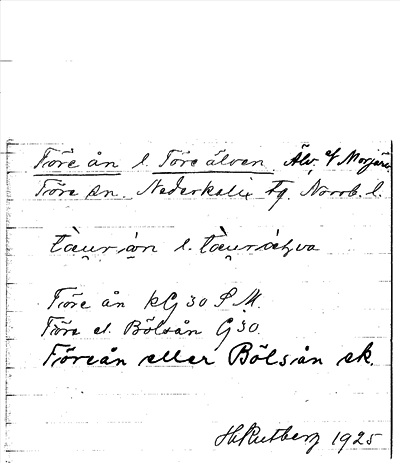 Töre ån l. Töre älven Älv. af Morjärv
Töre sn. Nederkalix tg. Norrb. l.
tàurṣån l. tàurätva
Töre ån kG 30 S M.
Töre el. Bölsån G 30.
Töreån eller Bölsån ek.
H Rutberg 1925